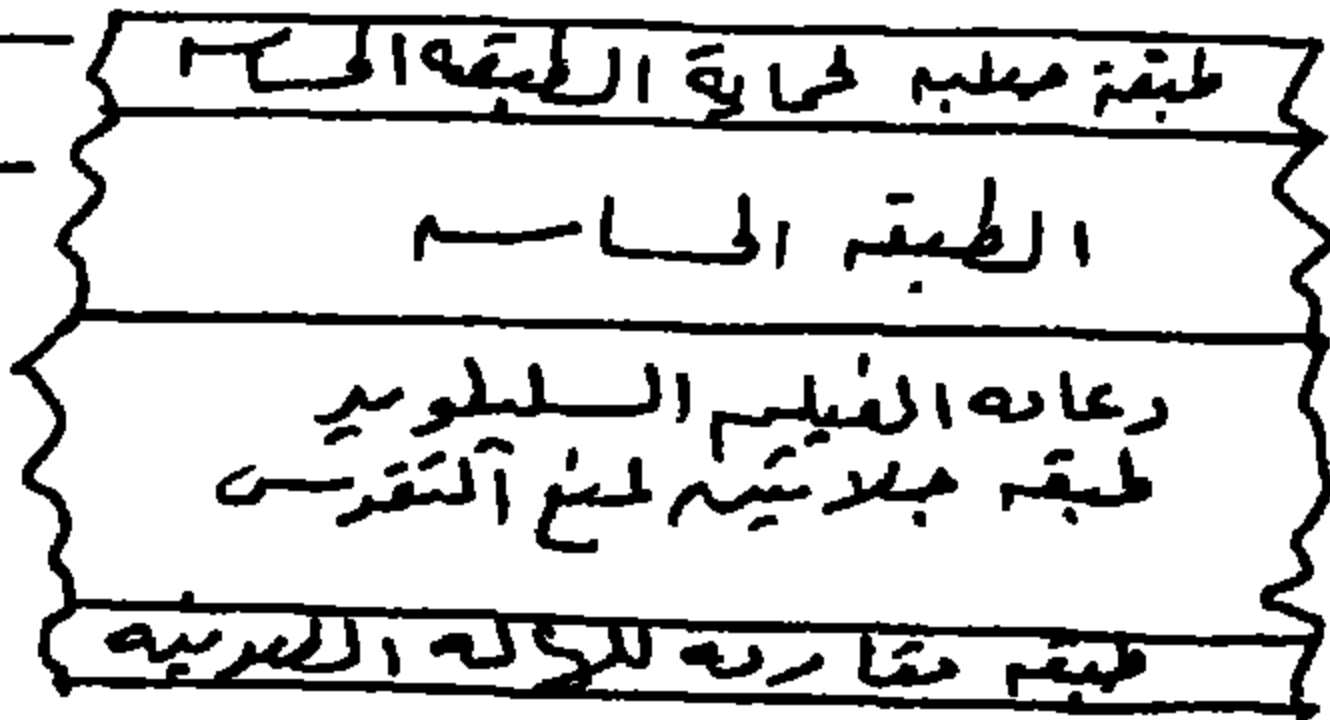 طبقة صلبه لحماية الطبقه الحاسه
الطبقه الحاسه
دعامه الفيلم السليلويد
طبقه جلاتينيه لمنع التقوس
طبقه مقاومه للهاله الضوئيه